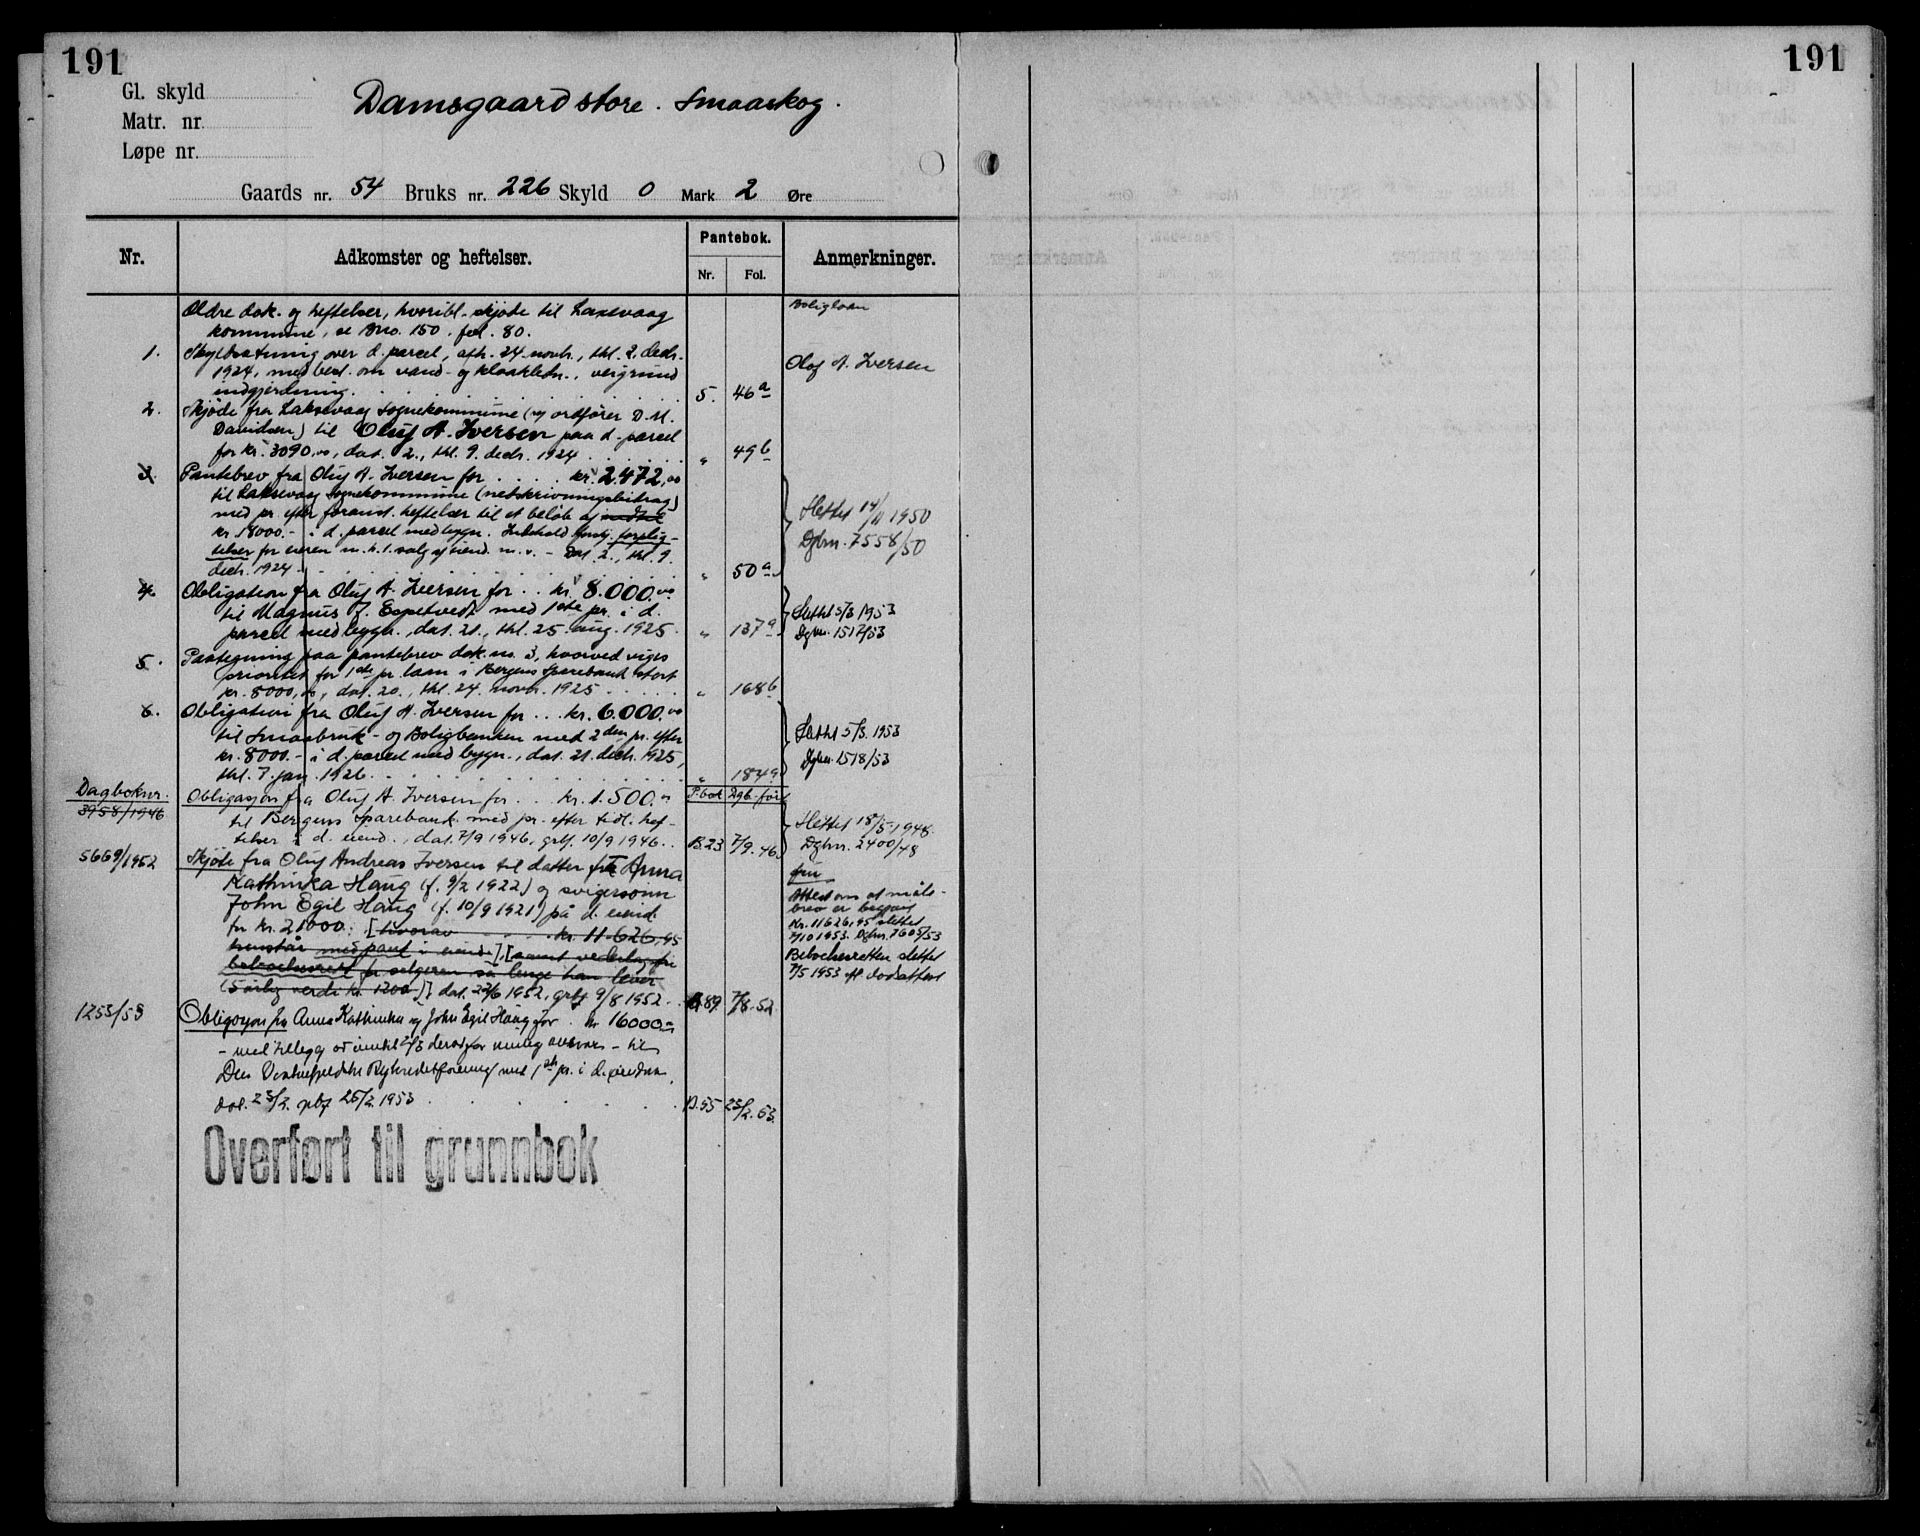 191
191
Gl. skyld
Matr. nr.
Løpe nr.
Damsgaard store. Smaaskog.
Gaards nr. 54 Bruks nr. 226 Skyld 0 Mark 2 Øre
Nr. Adkomster og heftelser. Pantebok. Anmerkninger.
Nr. Fol.
Ældre dok. og heftelser, hvoribl. skjøte til Laxevaag
kommune, se Bno. 150. fol. 80.
Boliglaan
1. Skyldsætning over d. parcel, afh. 24. novbr., thl. 2. decbr.
1924, med best. om vand- og kloakledn., veigrund
indgjerdning. 5. 46a
Olaf A. Iversen
2. Skjøde fra Laksevaag sognekommune (ved ordfører D. M.
Davidsen) til Oluf A. Iversen paa d. parcel
for kr. 3090,00, dat. 2., thl. 9. decbr. 1924 " 49b
3. Pantebrev fra Oluf A. Iversen for kr. 2.472,00
til Laksevaag sognekommune (nedskrivningsbidrag)
med pr. efter foranst. heftelser til et beløb af indtil
kr. 8000.- i d. parcel med bygn. Indehold. forplig-
telser for eieren m. h. t. salg af eiend. m. v. - Dat. 2., thl. 9.
decbr. 1924 " 50a
Slettet 14/11 1950
Dgbnr. 7558/50
4. Obligation fra Oluf A. Iversen for .. kr. 8.000.00
til Magnus J. Espetvedt med 1ste pr. i d.
parcel med bygn., dat. 21., thl. 25. aug. 1925. " 137a
Slettet 5/3 1953
Dgbnr. 1517/53
5. Paategning paa pantebrev dok. no. 3, hvorved viges
prioritet for 1ste pr. laan i Bergens Sparebank stort
kr. 8000,00, dat. 20., thl. 24. novbr. 1925 " 168b
6. Obligation fra Oluf A. Iversen for ... kr. 6.000.00
til Smaabruk- og Boligbanken med 2den pr. efter
kr. 8000.- i d. parcel med bygn., dat. 21. decbr. 1925,
thl. 7. jan. 1926. " 184a
Slettet 5/3. 1953
Dgbnr. 1518/53
Dagboknr.
3958/1946 Obligasjon fra Oluf A. Iversen for ... kr. 1.500.00 P.bok Dgb. ført
til Bergens Sparebank med pr. efter tidl. hef-
telser i d. eiend., dat. 7/9 1946, grbf. 10/9 1946.. B.23 7/9.46
Slettet 18/5 1948.
Dgbnr. 2400/48
5669/1952 Skjøte fra Oluf Andreas Iversen til datter fru Anna
Kathinka Haug (f. 9/2 1922) og svigersønn
John Egil Haug (f. 10/9 1921) på d. eiend.
for kr. 21000: [hvorav kr. 11.626,45
henstår med pant i eiend.] [samt vederlag fri
beboelsesrett for selgeren så lenge han lever
(5 årlig verdi kr. 1200)] dat. 27/6 1952, grbf 9/8 1952. B.89 7/8.52
Attest om at måle-
brev er begjært
Kr. 11626,45 slettet
7/10 1953. Dgbnr. 7605/53
Beboelsesretten slettet
7/5 1953 fl. dødsattest
1253/53 Obligasjon fra Anna Kathinka og John Egil Haug for . kr 16000.=
- med tillegg av inntil 2/3 derav for mulig ansvar - til
Den Vestenfjeldske Bykredittforening med 1ste pr. i d. eiendom,
dat. 23/2. grbf 25/2 1953 B.55 23/2.53.
Overført til grunnbok